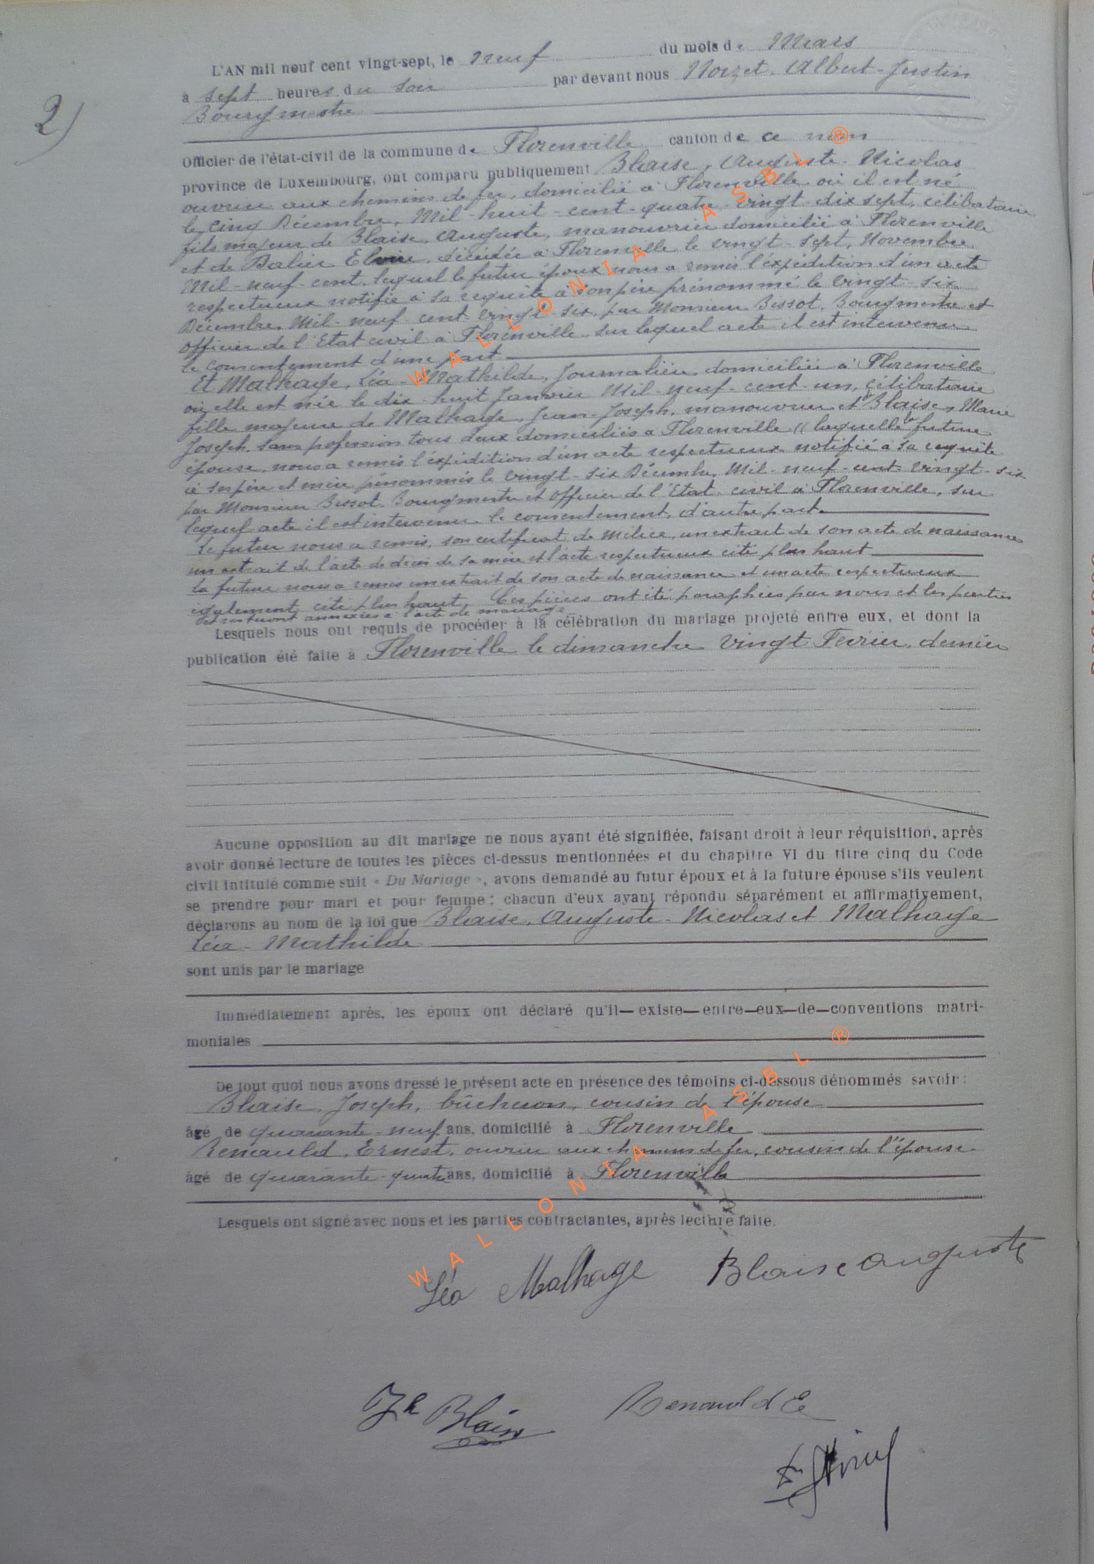 2)
L'AN mil neuf cent vingt-sept, le neuf du mois de Mars
à sept heures du soir par devant nous Noizet, Albert-Justin
Bourgmestre
Officier de l'état-civil de la commune de Florenville canton de ce nom
province de Luxembourg, ont comparu publiquement Blaise, Auguste-Nicolas
ouvrier aux chemins de fer, domicilié à Florenville où il est né
le cinq Décembre, Mil-huit-cent-quatre-vingt-dix sept, célibataire
fils majeur de Blaise, Auguste, manouvrier domicilié à Florenville
et de Balier Elvire, décédée à Florenville le vingt-sept, Novembre
Mil-neuf-cent, lequel le futur époux nous a remis l'expédition d'un acte
respectueux notifié à sa requête à son père prénommé le vingt-six
Décembre, Mil-neuf-cent-vingt-six, par Monsieur Bissot, Bourgmestre et
Officier de l'Etat civil à Florenville sur lequel acte il est intervenu
le consentement d'une part
Et Malhage, Léa-Mathilde, Journalière, domiciliée à Florenville
où elle est née le dix-huit Janvier Mil-neuf-cent-un, célibataire
fille majeure de Malhage, Jean-Joseph, manouvrier et Blaise, Marie
Joseph, sans profession tous deux domiciliés à Florenville laquelle future
épouse, nous a remis l'expédition d'un acte respectueux notifié à sa requête
à ses père et mère prénommés le vingt-six Décembre, Mil-neuf-cent vingt-six
par Monsieur Bissot, Bourgmestre et Officier de l'Etat-civil à Florenville, sur
lequel acte il est intervenu le consentement, d'autre part.
Le futur nous a remis, son certificat de milice, un extrait de son acte de naissance
un extrait de l'acte de décès de sa mère et l'acte respectueux cité plus haut
la future nous a remis un extrait de son acte de naissance et un acte respectueux
également cité plus haut. Ces pièces ont été paraphées par nous et les parties
et seront annexées à l'acte de mariage
Lesquels nous ont requis de procéder à la célébration du mariage projeté entre eux, et dont la
publication été faite à Florenville le dimanche vingt Février, dernier
Aucune opposition au dit mariage ne nous ayant été signifiée, faisant droit à leur réquisition, après
avoir donné lecture de toutes les pièces ci-dessus mentionnées et du chapitre VI du titre cinq du Code
civil intitulé comme suit « Du Mariage », avons demandé au futur époux et à la future épouse s'ils veulent
se prendre pour mari et pour femme : chacun d'eux ayant répondu séparément et affirmativement,
déclarons au nom de la loi que Blaise, Auguste-Nicolas et Malhage
Léa-Mathilde
sont unis par le mariage
Immédiatement après, les époux ont déclaré qu'il existe entre eux de conventions matri-
moniales
De tout quoi nous avons dressé le présent acte en présence des témoins ci-dessous dénommés savoir :
Blaise, Joseph, bûcheron, cousin de l'épouse
âgé de quarante neuf ans, domicilié à Florenville
Renauld, Ernest, ouvrier aux chemins de fer, cousin de l'épouse
âgé de quarante-quatre ans, domicilié à Florenville
Lesquels ont signé avec nous et les parties contractantes, après lecture faite.
Léa Malhage Blaise Auguste
Jh Blaise Renauld E
WALLONIA ASBL ®
WALLONIA ASBL ®